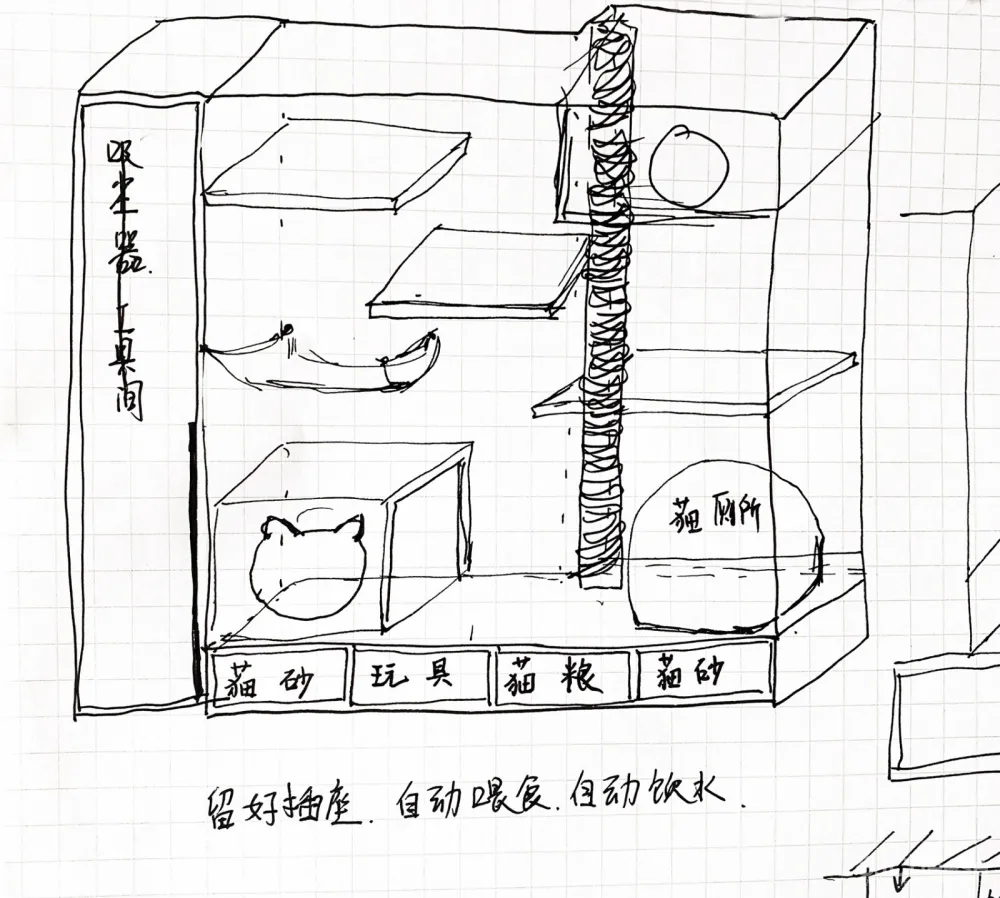 吸尘器.工具间
猫厕所
猫砂
玩具
猫粮
猫砂
留好插座.自动喂食.自动饮水.